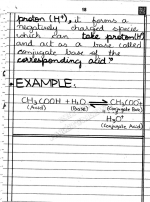 18
proton (H⁺), it forms a
negatively charged species
which can take proton(H⁺)
and act as a base called
conjugate base of the
corresponding acid."
• EXAMPLE:
CH₃COOH + H₂O ⇌ CH₃COO⁻ +
(Acid) (Base) (Conjugate Base)
H₃O⁺
(Conjugate Acid)